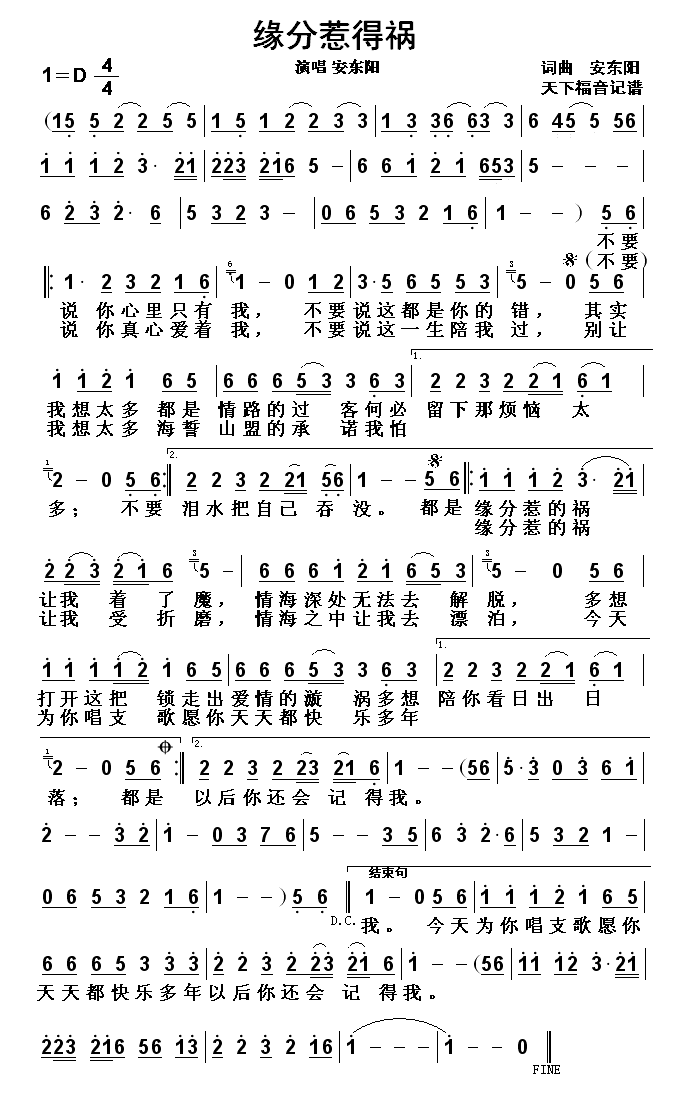 缘分惹得祸
1=D 4/4
演唱 安东阳
词曲 安东阳
天下福音记谱
(15 5 2 2 5 5 | 1 5 1 2 2 3 3 | 1 3 36 63 3 | 6 45 5 56
1 1 1 2 3· 21 | 223 216 5 - | 6 6 1 2 1 653 | 5 - - -
6 2 3 2· 6 | 5 3 2 3 - | 0 6 5 3 2 1 6 | 1 - - ) 5 6
不要
(不要)
1· 2 3 2 1 6 | 1 - 0 1 2 | 3· 5 6 5 5 3 | 5 - 0 5 6
说 你心里只有 我， 不要说这都是你的 错， 其实
说 你真心爱着 我， 不要说这一生陪我 过， 别让
1 1 2 1 6 5 | 6 6 6 5 3 3 6 3 | 1. 2 2 3 2 2 1 6 1
我想太多 都是 情路的过 客何必 留下那烦恼 太
我想太多 海誓 山盟的承 诺我怕
2 - 0 5 6 :| 2. 2 2 3 2 21 56 | 1 - - 5 6 |: 1 1 1 2 3· 21
多； 不要 泪水把自己 吞 没。 都是 缘分惹的祸
缘分惹的祸
2 2 3 2 1 6 5 - | 6 6 6 1 2 1 6 5 3 | 5 - 0 5 6
让我 着 了 魔， 情海深处无法去 解 脱， 多想
让我 受 折 磨， 情海之中让我去 漂 泊， 今天
1 1 1 1 2 1 6 5 | 6 6 6 5 3 3 6 3 | 1. 2 2 3 2 2 1 6 1
打开这把 锁走出爱情的漩 涡多想 陪你看日出 日
为你唱支 歌愿你天天都快 乐多年
2 - 0 5 6 :| 2. 2 2 3 2 23 21 6 | 1 - - (56 | 5· 3 0 3 6 1
落； 都是 以后你还会 记 得我。
2 - - 3 2 | 1 - 0 3 7 6 | 5 - - 3 5 | 6 3 2· 6 | 5 3 2 3 -
0 6 5 3 2 1 6 | 1 - - ) 5 6 || 结束句 1 - 0 5 6 | 1 1 1 2 1 6 5
D.C. 我。 今天为你唱支歌愿你
6 6 6 5 3 3 3 3 | 2 2 3 2 2 23 21 6 | 1 - - (56 | 11 12 3· 21
天天都快乐多年以后你还会 记 得我。
223 216 56 13 | 2 3 2 2 16 | 1 - - - | 1 - - 0 ||
FINE